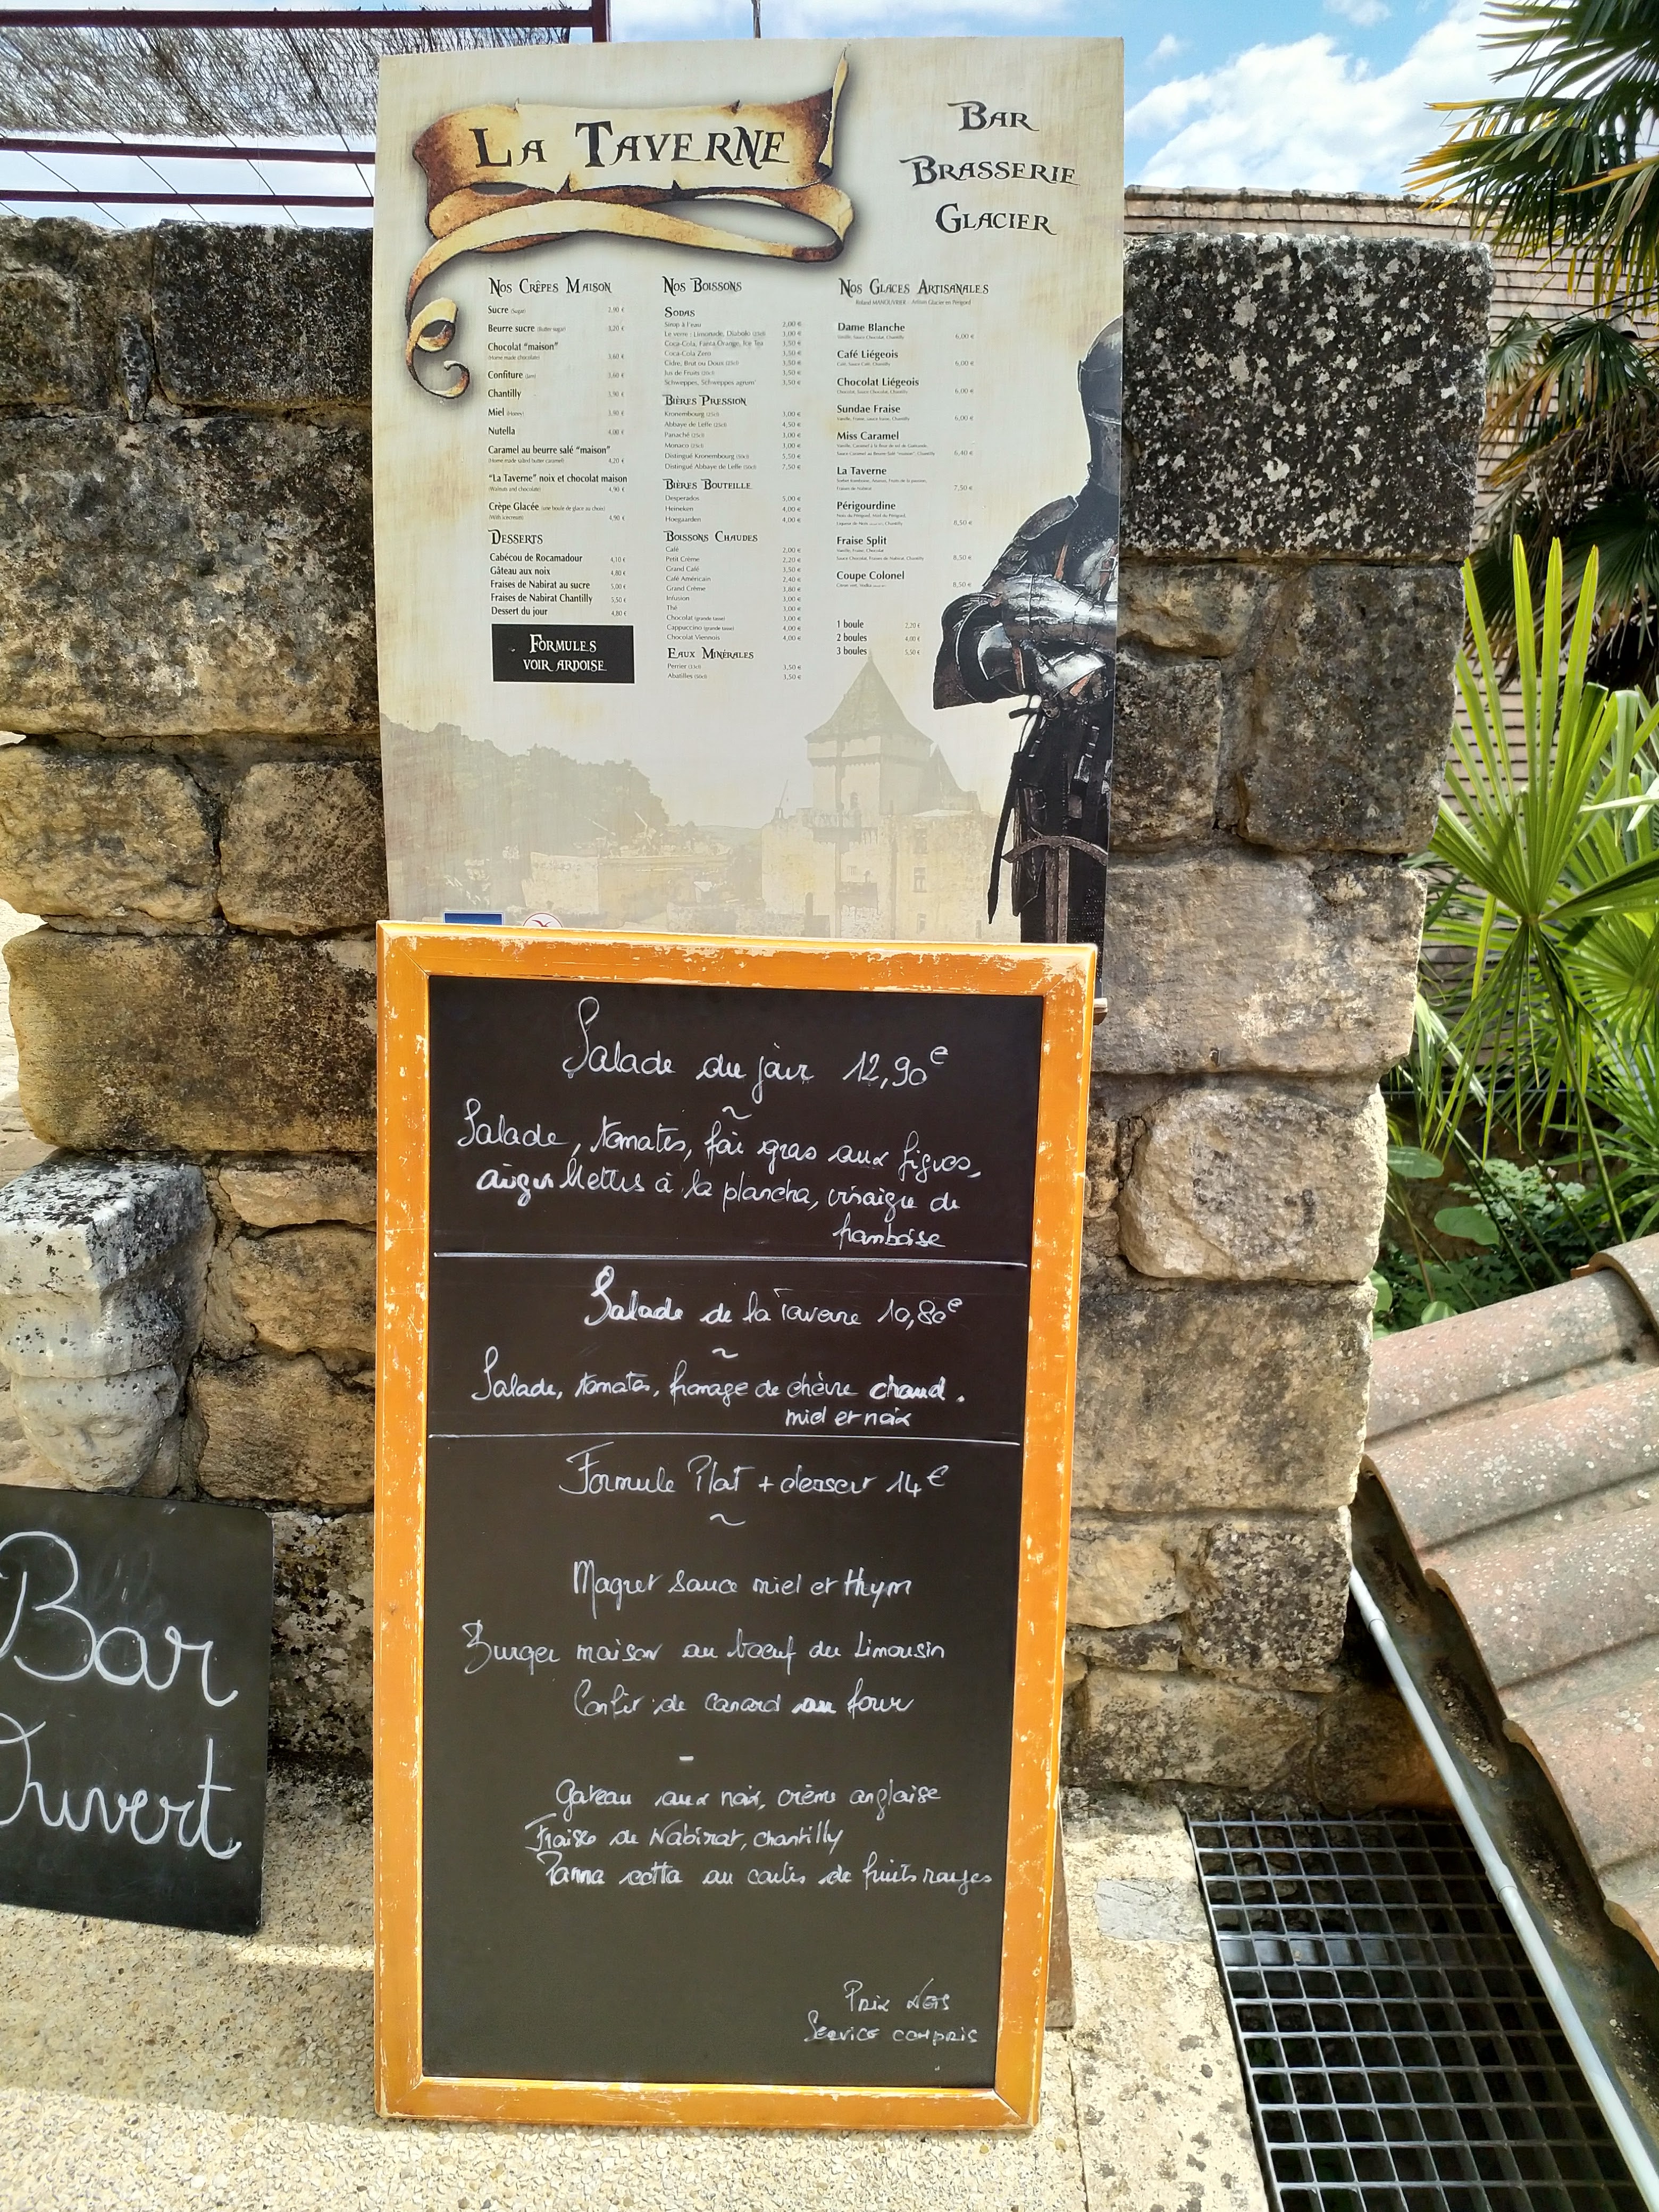 LA TAVERNE
BAR
BRASSERIE
GLACIER
NOS CRÊPES MAISON
Sucre (Sugar) 2,90 €
Beurre sucre (Butter sugar) 3,20 €
Chocolat "maison"
(Home made chocolate) 3,60 €
Confiture (Jam) 3,60 €
Chantilly 3,90 €
Miel (Honey) 3,90 €
Nutella 4,00 €
Caramel au beurre salé "maison"
(Home made salted butter caramel) 4,20 €
"La Taverne" noix et chocolat maison
(Walnuts and chocolate) 4,90 €
Crèpe Glacée (une boule de glace au choix)
(With icecream) 4,90 €
DESSERTS
Cabécou de Rocamadour 4,10 €
Gâteau aux noix 4,80 €
Fraises de Nabirat au sucre 5,00 €
Fraises de Nabirat Chantilly 5,50 €
Dessert du jour 4,80 €
FORMULES
VOIR ARDOISE
NOS BOISSONS
SODAS
Sirop à l'eau 2,00 €
Le verre : Limonade, Diabolo (25cl) 3,00 €
Coca-Cola, Fanta Orange, Ice Tea 3,50 €
Coca-Cola Zero 3,50 €
Cidre, Brut ou Doux (25cl) 3,50 €
Jus de Fruits (25cl) 3,50 €
Schweppes, Schweppes agrum' 3,50 €
BIÈRES PRESSION
Kronembourg (25cl) 3,00 €
Abbaye de Leffe (25cl) 4,50 €
Panaché (25cl) 3,00 €
Monaco (25cl) 3,00 €
Distingué Kronembourg (50cl) 5,50 €
Distingué Abbaye de Leffe (50cl) 7,50 €
BIÈRES BOUTEILLE
Desperados 5,00 €
Heineken 4,00 €
Hoegaarden 4,00 €
BOISSONS CHAUDES
Café 2,00 €
Petit Crème 2,20 €
Grand Café 3,50 €
Café Américain 2,40 €
Grand Crème 3,80 €
Infusion 3,00 €
Thé 3,00 €
Chocolat (grande tasse) 3,00 €
Cappuccino (grande tasse) 4,00 €
Chocolat Viennois 4,00 €
EAUX MINÉRALES
Perrier (33cl) 3,50 €
Abatilles (50cl) 3,50 €
NOS GLACES ARTISANALES
Roland MANOUVRIER - Artisan Glacier en Périgord
Dame Blanche
Vanille, Sauce Chocolat, Chantilly 6,00 €
Café Liégeois
Café, Sauce Café, Chantilly 6,00 €
Chocolat Liégeois
Chocolat, Sauce Chocolat, Chantilly 6,00 €
Sundae Fraise
Vanille, Fraise, sauce fraise, Chantilly 6,00 €
Miss Caramel
Vanille, Caramel à la fleur de sel de Guérande,
Sauce Caramel au Beurre Salé "maison", Chantilly 6,40 €
La Taverne
Sorbet framboise, Ananas, Fruits de la passion,
Fraises de Nabirat 7,50 €
Périgourdine
Noix du Périgord, Miel du Périgord,
Liqueur de Noix Chantilly 8,50 €
Fraise Split
Vanille, Fraise, Chocolat
Sauce Chocolat, Fraises de Nabirat, Chantilly 8,50 €
Coupe Colonel
Citron vert, Vodka 8,50 €
1 boule 2,20 €
2 boules 4,00 €
3 boules 5,50 €
Salade du jour 12,90e
~
Salade, tomates, foie gras aux figues,
aiguillettes à la plancha, vinaigre de
framboise
Salade de la Taverne 10,80e
~
Salade, tomates, fromage de chèvre chaud.
miel et noix
Formule Plat + dessert 14€
~
Magret sauce miel et thym
Burger maison au boeuf du Limousin
Confit de canard au four
-
Gateau aux noix, crème anglaise
Fraise de Nabirat, chantilly
Panna cotta au coulis de fruits rouges
Prix nets
Service compris
Bar
Ouvert